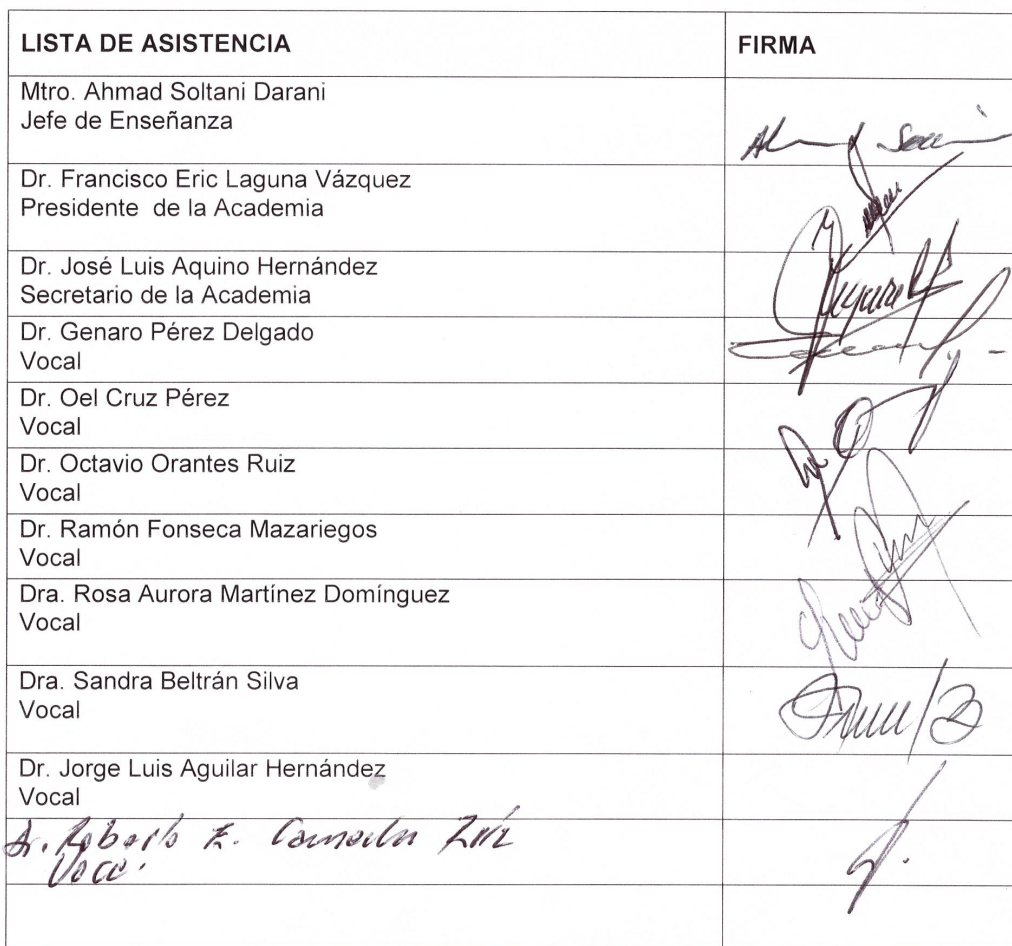 LISTA DE ASISTENCIA
FIRMA
Mtro. Ahmad Soltani Darani
Jefe de Enseñanza
Dr. Francisco Eric Laguna Vázquez
Presidente de la Academia
Dr. José Luis Aquino Hernández
Secretario de la Academia
Dr. Genaro Pérez Delgado
Vocal
Dr. Oel Cruz Pérez
Vocal
Dr. Octavio Orantes Ruiz
Vocal
Dr. Ramón Fonseca Mazariegos
Vocal
Dra. Rosa Aurora Martínez Domínguez
Vocal
Dra. Sandra Beltrán Silva
Vocal
Dr. Jorge Luis Aguilar Hernández
Vocal
Dr. Roberto E.